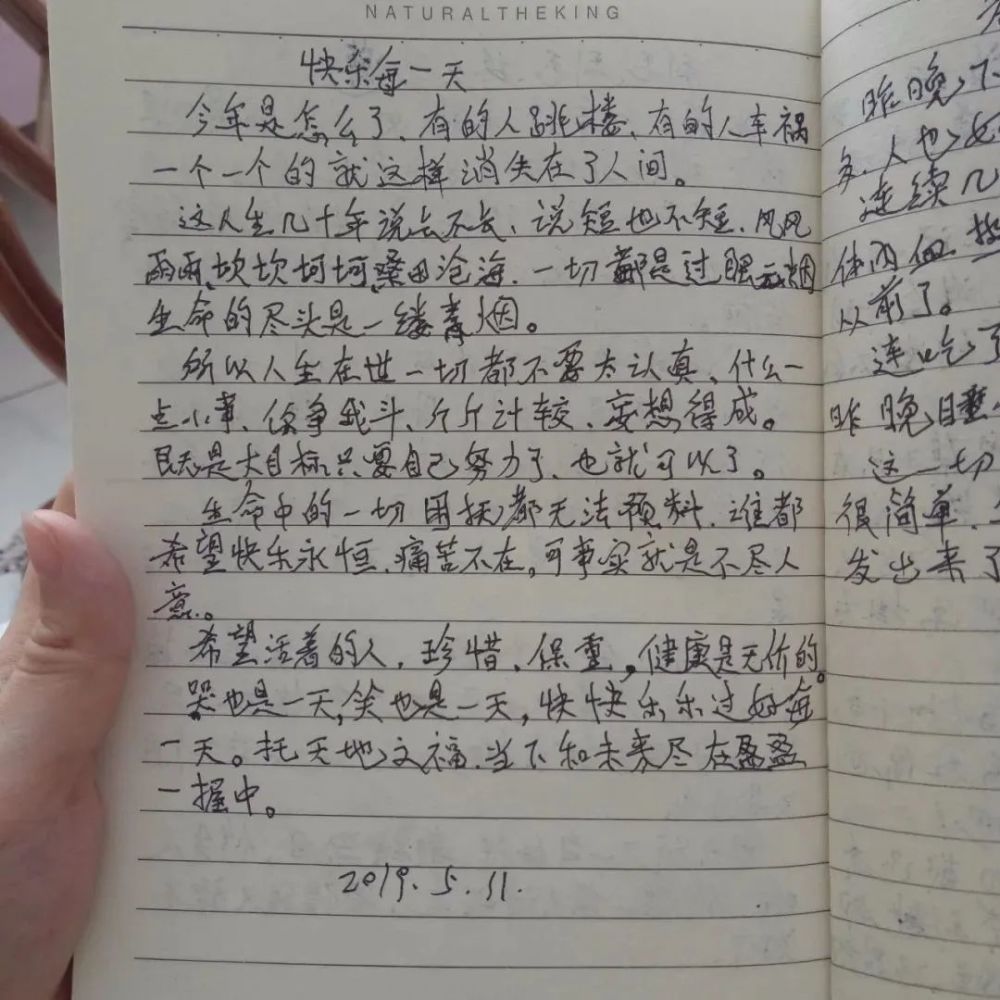 NATURALTHEKING
快乐每一天
今年是怎么了、有的人跳楼、有的人车祸
一个一个的就这样消失在了人间。
这人生几十年说长不长、说短也不短、风风
雨雨、坎坎坷坷、桑田沧海、一切都是过眼云烟
生命的尽头是一缕青烟。
所以人生在世一切都不要太认真、什么一
点小事、争我斗、斤斤计较、妄想得成。
既是大目标只要自己努力了、也就可以了。
生命中的一切困扰都无法预料、谁都
希望快乐永恒、痛苦不在,可事实就是不尽人
意。
希望活着的人,珍惜、保重,健康是无价的。
哭也是一天,笑也是一天,快快乐乐过好每
一天。托天地之福、当下和未来尽在盈盈
一握中。
2019.5.11.
昨晚下
多、人也好
连续几
体内血
从前了。
连吃了
昨晚睡
这一切
很简单、
发出来了